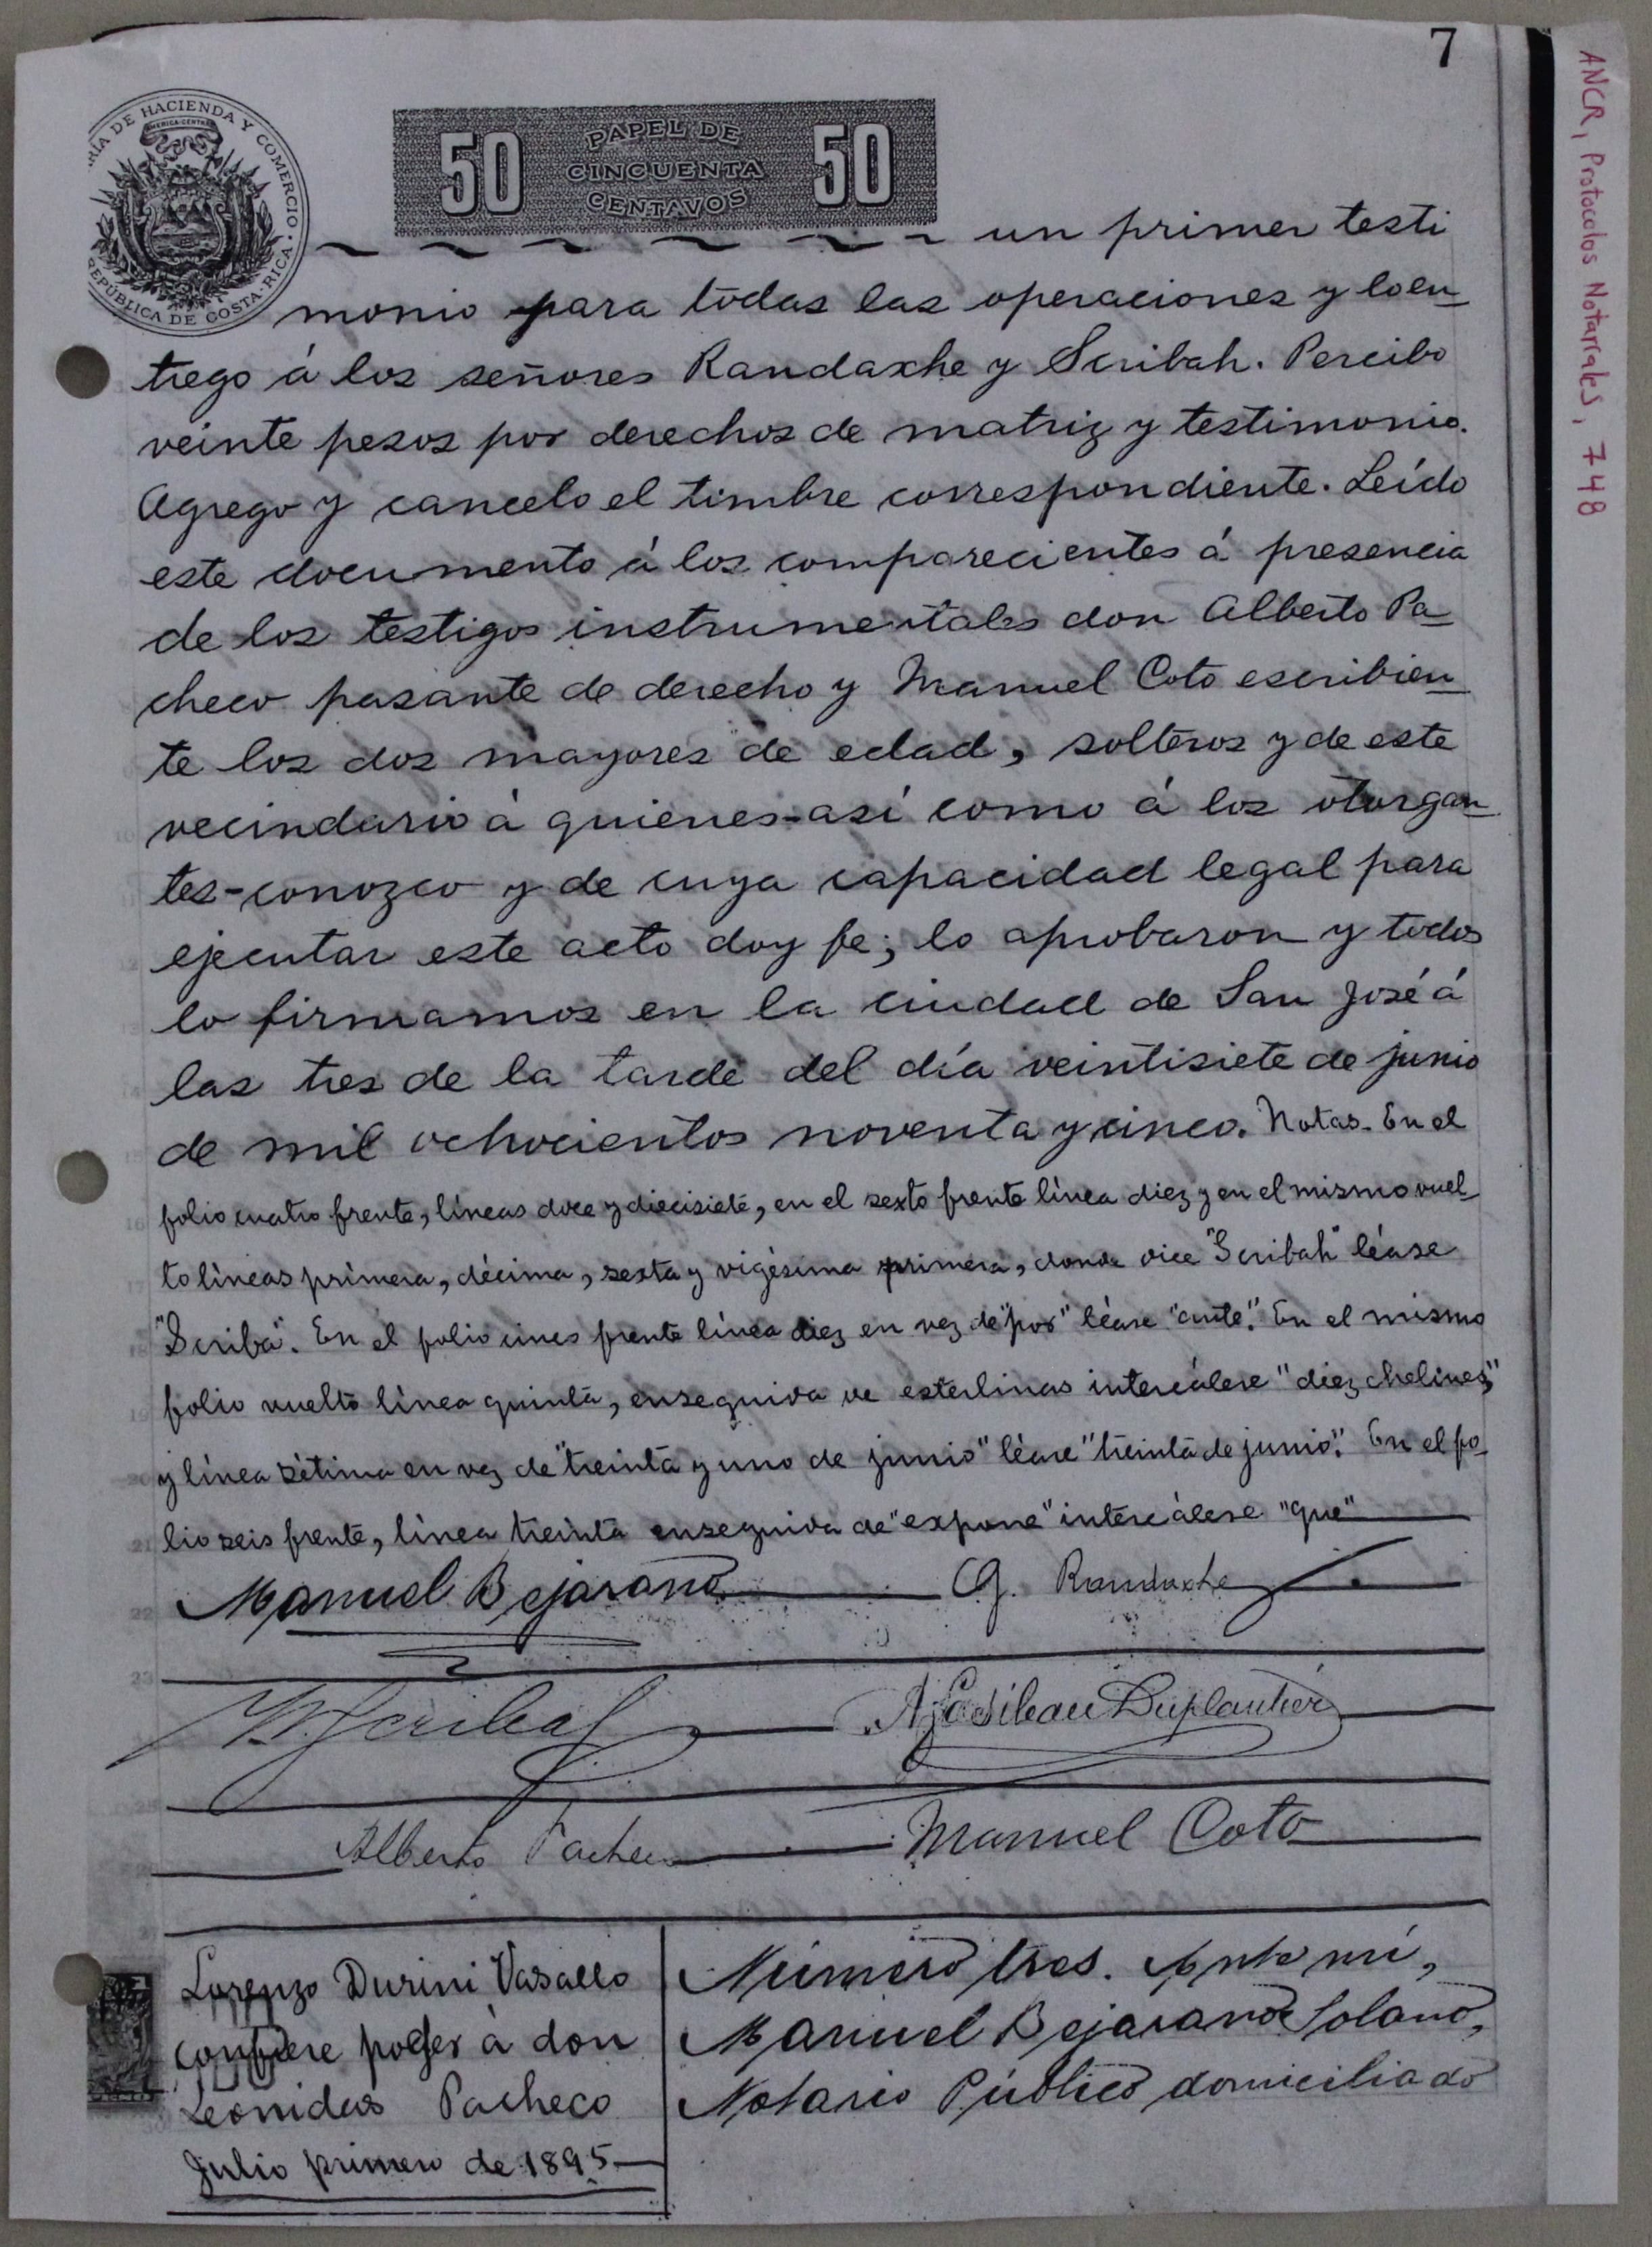 7
ANCR, Protocolos Notariales, 748
RÍA DE HACIENDA Y COMERCIO.
AMERICA CENTRAL
REPÚBLICA DE COSTA-RICA.
50 PAPEL DE CINCUENTA CENTAVOS 50
un primer testi
monio para todas las operaciones y lo en-
trego á los señores Randaxhe y Scribah. Percibo
veinte pesos por derechos de matriz y testimonio.
Agrego y cancelo el timbre correspondiente. Leído
este documento á los comparecientes á presencia
de los testigos instrumentales don Alberto Pa-
checo pasante de derecho y Manuel Coto escribien-
te los dos mayores de edad, solteros y de este
vecindario á quienes-así como á los otorgan-
tes-conozco y de cuya capacidad legal para
ejecutar este acto doy fe; lo aprobaron y todos
lo firmamos en la ciudad de San José á
las tres de la tarde del día veintisiete de junio
de mil ochocientos noventa y cinco. Notas. En el
folio cuatro frente, líneas doce y diecisiete, en el sexto frente línea diez y en el mismo vuel-
to líneas primera, décima, sexta y vigésima primera, donde dice "Scribah" léase
"Scriba". En el folio cinco frente línea diez en vez de "por" léase "ante". En el mismo
folio vuelto línea quinta, enseguida de esterlinas intercálese "diez chelines",
y línea sétima en vez de "treinta y uno de junio" léase "treinta de junio". En el fo-
lio seis frente, línea treinta enseguida de "expone" intercálese "que"
Manuel Bejarano G. Randaxhe
Scriba
Alberto Pacheco Manuel Coto
Lorenzo Durini Vasallo
confiere poder á don
Leonidas Pacheco
Julio primero de 1895
Número tres. Ante mí,
Manuel Bejarano Solano,
Notario Público domiciliado